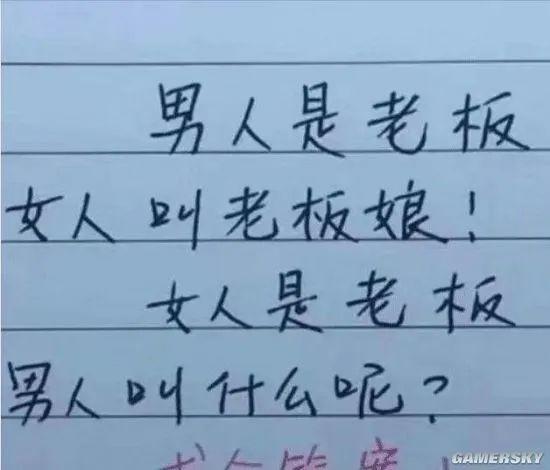 男人是老板
女人叫老板娘！
女人是老板
男人叫什么呢？
GAMERSKY